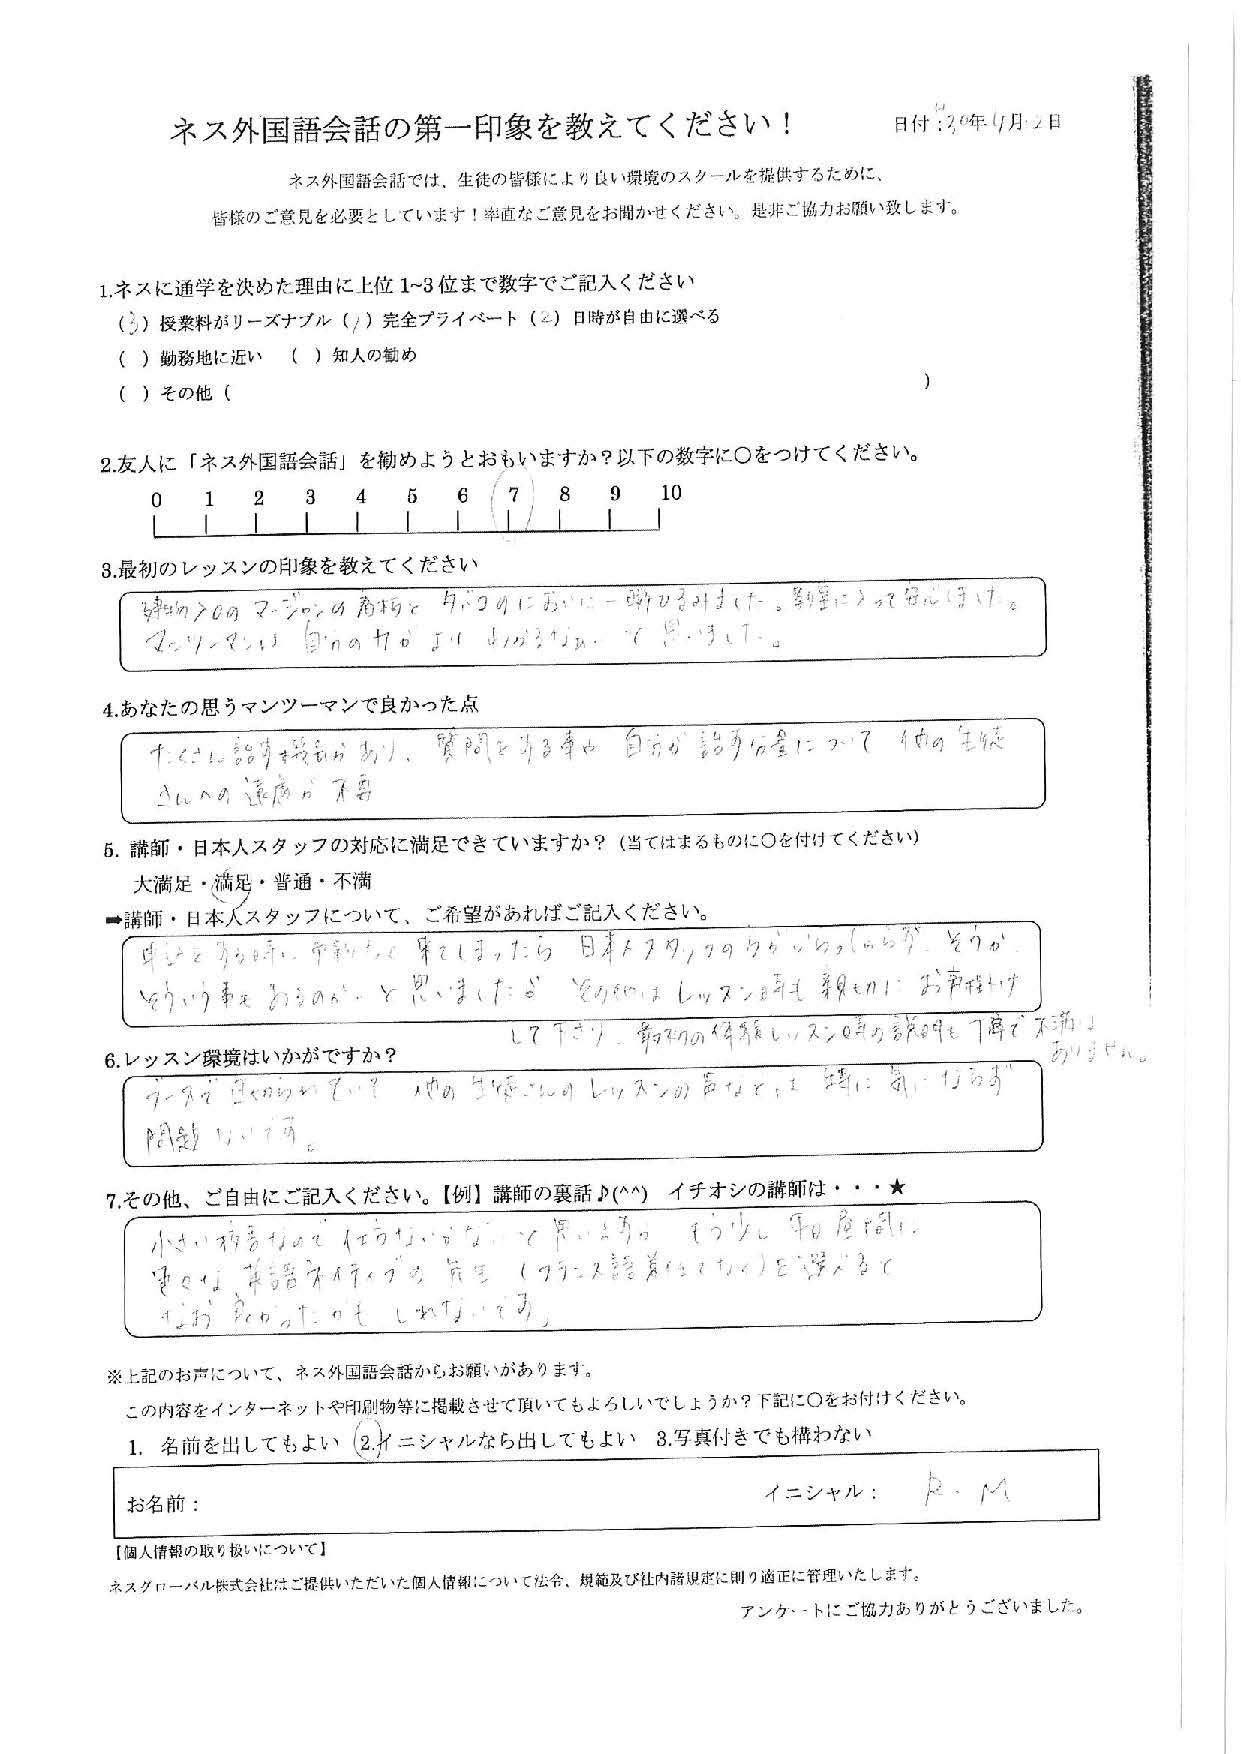 ネス外国語会話の第一印象を教えてください！
日付：H30年4月2日
ネス外国語会話では、生徒の皆様により良い環境のスクールを提供するために、
皆様のご意見を必要としています！率直なご意見をお聞かせください。是非ご協力お願い致します。
1.ネスに通学を決めた理由に上位1~3位まで数字でご記入ください
（3）授業料がリーズナブル（1）完全プライベート（2）日時が自由に選べる
（ ）勤務地に近い （ ）知人の勧め
（ ）その他（ ）
2.友人に「ネス外国語会話」を勧めようとおもいますか？以下の数字に〇をつけてください。
0 1 2 3 4 5 6 7 8 9 10
3.最初のレッスンの印象を教えてください
建物入口のマージャンの看板とタバコのにおいに一瞬ひるみました。教室に入って安心しました。
マンツーマンは自分の力がよりわかるなぁ、と思いました。
4.あなたの思うマンツーマンで良かった点
たくさん話す機会があり、質問をする事や自分が話す分量について他の生徒
さんへの遠慮が不要
5. 講師・日本人スタッフの対応に満足できていますか？（当てはまるものに〇を付けてください）
大満足・満足・普通・不満
➡講師・日本人スタッフについて、ご希望があればご記入ください。
申込をする時に予約なく来てしまったら日本人スタッフの方がいらっしゃらず、そうか、
そういう事もあるのか、と思いましたが その他はレッスン時も親切にお声掛け
して下さり、最初の体験レッスン時の説明も丁寧で不満は
ありません。
6.レッスン環境はいかがですか？
ブースで区切られていて 他の生徒さんのレッスンの声などは特に気にならず
問題ないです。
7.その他、ご自由にご記入ください。【例】講師の裏話♪(^^) イチオシの講師は・・・★
小さい校舎なので仕方ないかな、と思いますが もう少し平日昼間に
色々な英語ネイティブの先生（フランス語兼任でなく）を選べると
なお良かったかもしれないです。
※上記のお声について、ネス外国語会話からお願いがあります。
この内容をインターネットや印刷物等に掲載させて頂いてもよろしいでしょうか？下記に〇をお付けください。
1. 名前を出してもよい 2.イニシャルなら出してもよい 3.写真付きでも構わない
お名前：
イニシャル： R・M
【個人情報の取り扱いについて】
ネスグローバル株式会社はご提供いただいた個人情報について法令、規範及び社内諸規定に則り適正に管理いたします。
アンケートにご協力ありがとうございました。